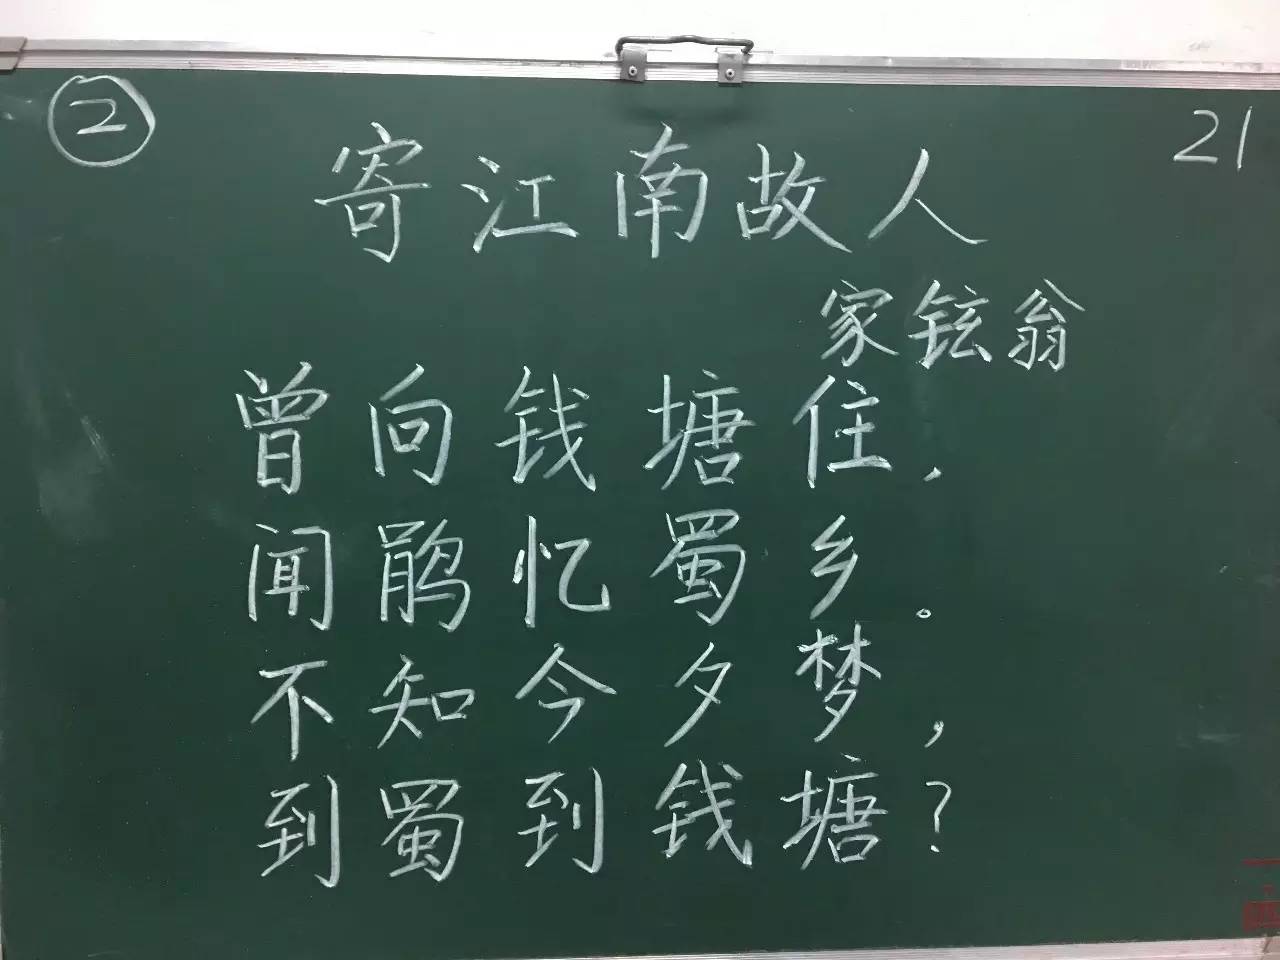 ② 21
寄江南故人
家铉翁
曾向钱塘住，
闻鹃忆蜀乡。
不知今夕梦，
到蜀到钱塘？